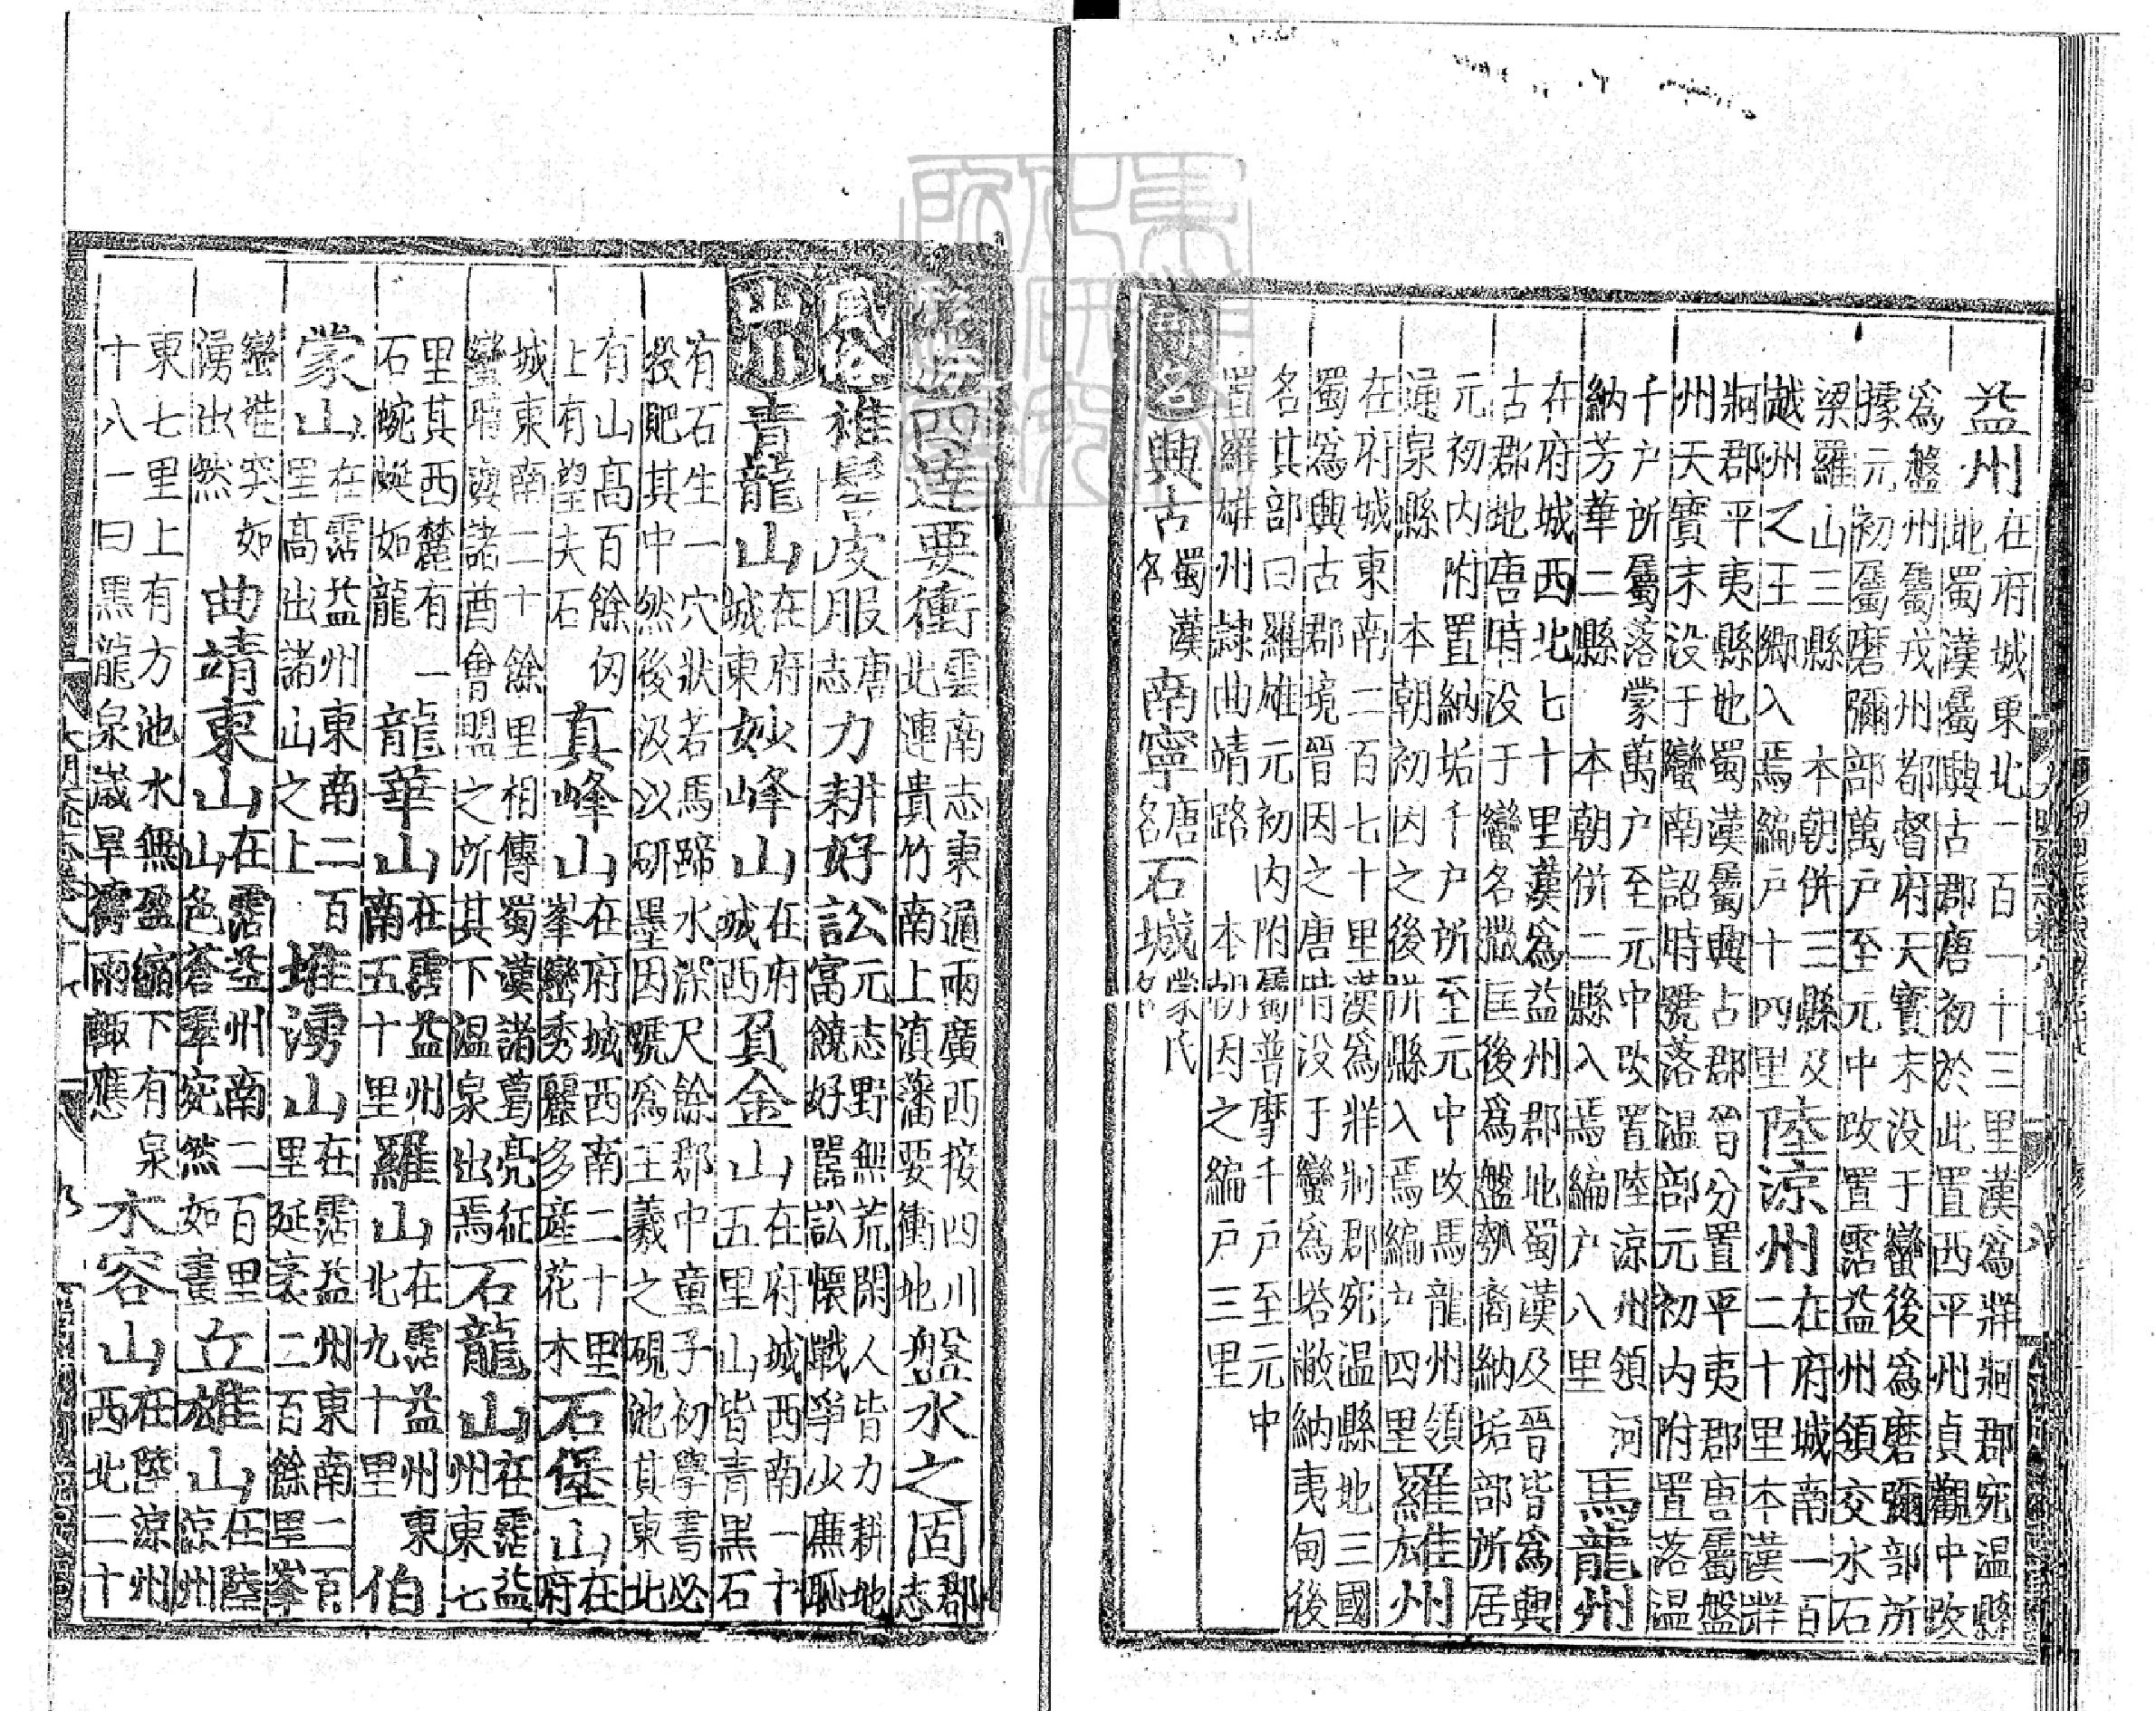 益州在府城東北一百一十三里漢爲牂牁郡宛温縣
地蜀漢屬興古郡唐初於此置西平州貞觀中改
爲盤州屬戎州都督府天寶末没于蠻後爲磨彌部所
據元初屬磨彌部萬户至元中改置霑益州領交水石
梁羅山三縣 本朝併三縣及
越州之王鄉入焉編户十四里陸涼州在府城南一百
二十里本漢牂
牁郡平夷縣地蜀漢屬興古郡晉分置平夷郡唐屬盤
州天寶末没于蠻南詔時號落温部元初内附置落温
千户所屬落蒙萬户至元中改置陸涼州領河
納芳華二縣 本朝併二縣入焉編户八里馬龍州
在府城西北七十里漢爲益州郡地蜀漢及晉皆爲興
古郡地唐時没于蠻名撒匡後爲盤瓠裔納垢部所居
元初内附置納垢千户所至元中改馬龍州領
通泉縣 本朝初因之後併縣入焉編户四里羅雄州
在府城東南二百七十里漢爲牂牁郡宛温縣地三國
蜀爲興古郡境晉因之唐時没于蠻爲塔敝納夷甸後
名其部曰羅雄元初内附屬普摩千户至元中
置羅雄州隸曲靖路 本朝因之編户三里
郡名興古蜀漢名南寧唐名石城蒙氏名
形勝四達要衝雲南志東通兩廣西接四川
北連貴竹南上滇藩要衝地盤水之固郡志
風俗椎髻皮服唐志力耕好訟元志野無荒閑人皆力耕地
富饒好嚚訟懷戰爭少廉恥
山川青龍山在府城東妙峰山在府城西負金山在府城西南一十
五里山皆青黑石
有石生一穴狀若馬蹄水深尺餘郡中童子初學書必
投肥其中然後汲以研墨因號爲王羲之硯池其東北
有山高百餘仞
上有望夫石真峰山在府城西南二十里
峯巒秀麗多産花木石堡山在府
城東南二十餘里相傳蜀漢諸葛亮征
蠻時與諸酋會盟之所其下温泉出焉石龍山在霑益
州東七
里其西麓有一
石蜿蜒如龍龍華山在霑益州
南五十里羅山在霑益州東
北九十里伯
蒙山在霑益州東南二百
里高出諸山之上堆湧山在霑益州東南二百
里延袤二百餘里峯
巒突如
湧出然曲靖東山在霑益州南二百里
山色蒼翠宛然如畫立雄山在陸
涼州
東七里上有方池水無盈縮下有泉
十八一曰黑龍泉歲旱禱雨輒應木容山在陸涼州
西北二十